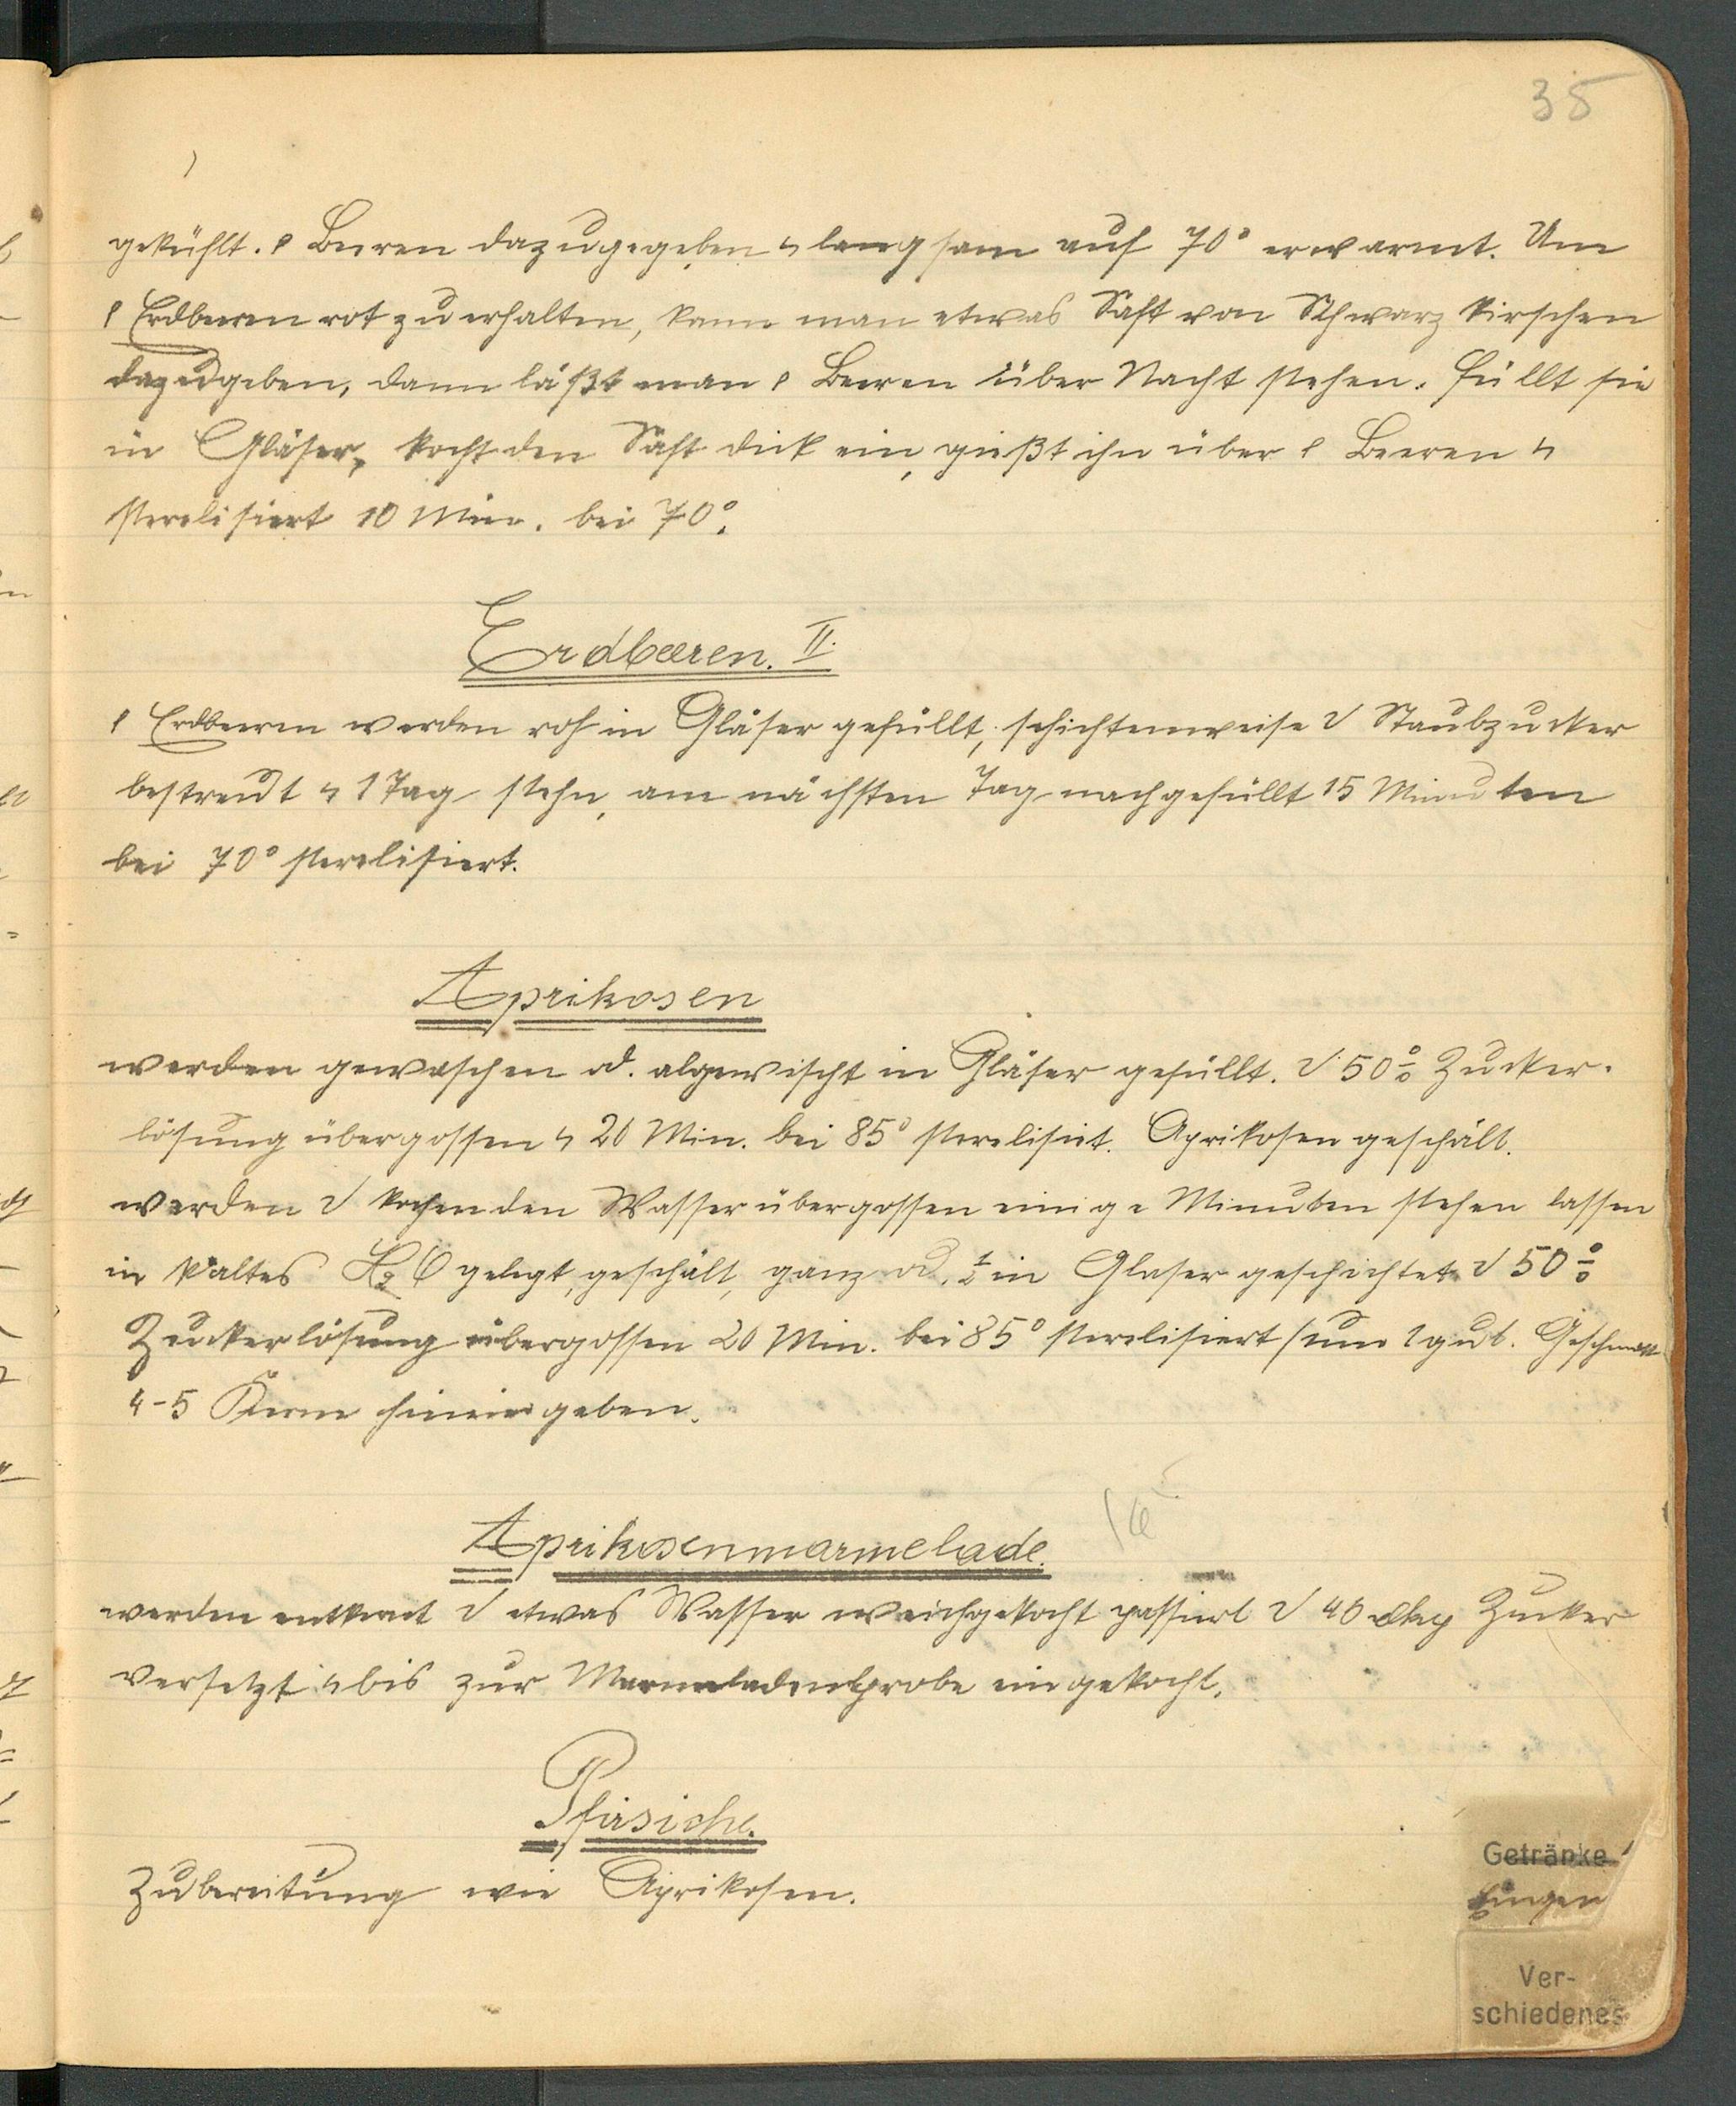 35
gekühlt. d Beeren dazugegeben u langsam auf 70° erwarmt. Um
d Erdbeeren rot zu erhalten, kann man etwas Saft von Schwarz kirschen
dazugeben, dann läßt man d Beeren über Nacht stehen. füllt sie
in Gläser, kocht den Saft dick ein, gießt ihn über d Beeren u
sterelisiert 10 Min. bei 70°.
Erdbeeren. II.
d Erdbeeren werden roh in Gläser gefüllt, schichtenweise m Staubzucker
bestreut u 1 Tag stehn, am nächsten Tag nachgefüllt 15 Minuten
bei 70° sterelisiert.
Aprikosen
werden gewaschen od. abgewischt in Gläser gefüllt. m 50% Zucker-
lösung übergossen u 20 Min. bei 85° sterelisiert. Aprikosen geschält.
werden m kochenden Wasser übergossen einige Minuten stehen lassen
in kaltes H2O gelegt, geschält, ganz od. ½ in Glaser geschichtet m 50%
Zuckerlösung übergossen 20 Min. bei 85° sterelisiert / um gut. Geschmack
4-5 Kerne hineingeben.
Aprikosenmarmelade.
werden entkernt m etwas Wasser weichgekocht passiert m 40 dkg Zucker
versetzt u bis zur Marmeladenprobe eingekocht.
Pfirsiche.
Zubereitung wie Aprikosen.
Getränke
Ver-
schiedenes